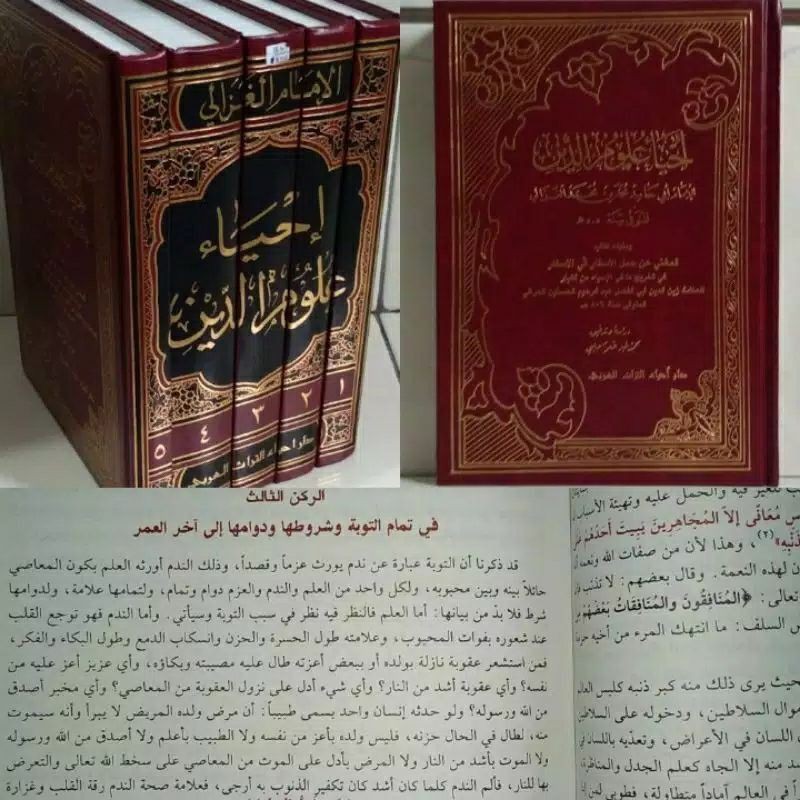 الإمام الغزالي
إحياء
علوم الدين
٥ ٤ ٣ ٢ ١
دار احياء التراث العربي
إحياء علوم الدين
المتوفى سنة ٥٠٥ هـ
وبذيله كتاب
المغني عن حمل الأسفار في الأسفار
في تخريج ما في الإحياء من الأخبار
للعلامة زين الدين أبي الفضل عبد الرحيم بن الحسين العراقي
المتوفى سنة ٨٠٦ هـ
دار احياء التراث العربي
الركن الثالث
في تمام التوبة وشروطها ودوامها إلى آخر العمر
قد ذكرنا أن التوبة عبارة عن ندم يورث عزماً وقصداً، وذلك الندم أورثه العلم بكون المعاصي
حائلاً بينه وبين محبوبه، ولكل واحد من العلم والندم والعزم دوام وتمام، ولتمامها علامة، ولدوامها
شرط فلا بدّ من بيانها: أما العلم فالنظر فيه نظر في سبب التوبة وسيأتي. وأما الندم فهو توجع القلب
عند شعوره بفوات المحبوب، وعلامته طول الحسرة والحزن وانسكاب الدمع وطول البكاء والفكر،
فمن استشعر عقوبة نازلة بولده أو ببعض أعزته طال عليه مصيبته وبكاؤه، وأي عزيز أعز عليه من
نفسه؟ وأي عقوبة أشد من النار؟ وأي شيء أدل على نزول العقوبة من المعاصي؟ وأي مخبر أصدق
من الله ورسوله؟ ولو حدثه إنسان واحد يسمى طبيباً: أن مرض ولده المريض لا يبرأ وأنه سيموت
منه، لطال في الحال حزنه، فليس ولده بأعز من نفسه ولا الطبيب بأعلم ولا أصدق من الله ورسوله
ولا الموت بأشد من النار ولا المرض بأدل على الموت من المعاصي على سخط الله تعالى والتعرض
بها للنار، فألم الندم كلما كان أشد كان تكفير الذنوب به أرجى، فعلامة صحة الندم رقة القلب وغزارة
فيه والحمل عليه وتهيئة الأسباب
معافى إلا المجاهرين يبيت أحدهم
(٢)، وهذا لأن من صفات الله ونعمه
لهذه النعمة. وقال بعضهم: لا تذنب
تعالى: ﴿المنافقون والمنافقات بعضهم
السلف: ما انتهك المرء من أخيه
بحيث يرى ذلك منه كبر ذنبه كلبس
السلاطين، ودخوله على
اللسان في الأعراض، وتعديه باللسان
منه إلا الجاه كعلم الجدل والمناظرة
في العالم آماداً متطاولة، فطوبى لمن